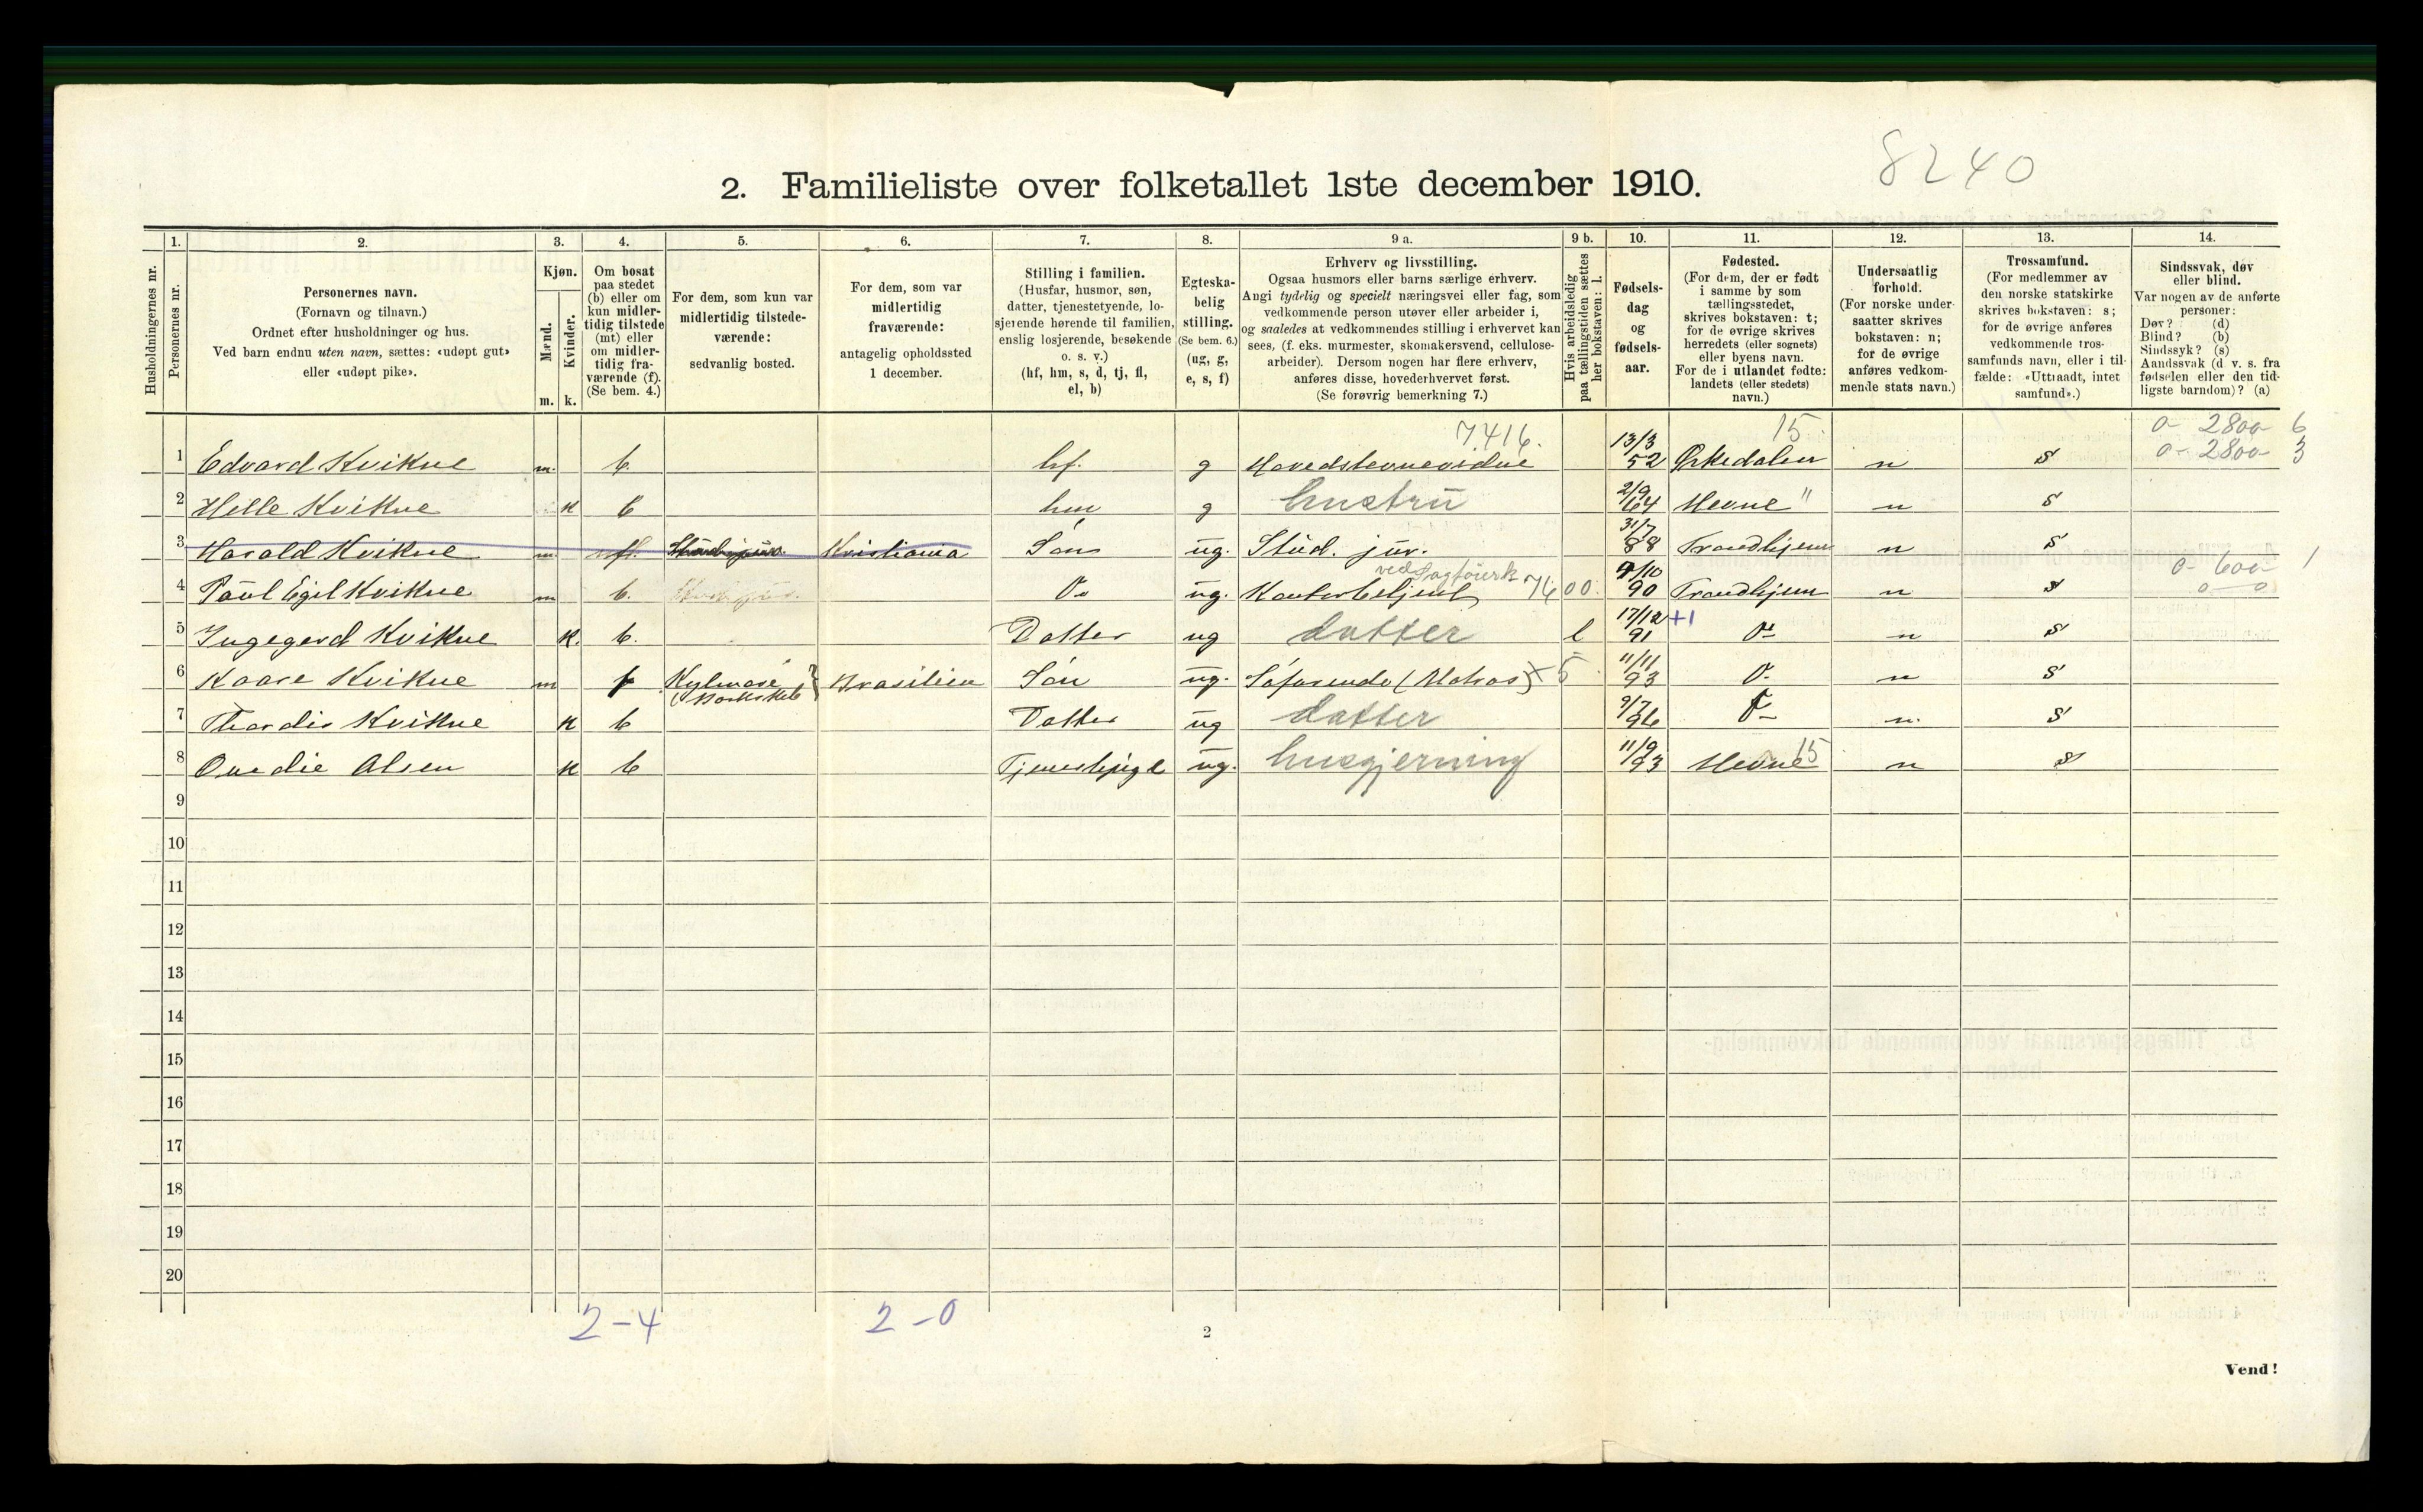 8240
2. Familieliste over folketallet 1ste december 1910.
1. 2. 3. 4. 5. 6. 7. 8. 9 a. 9 b. 10. 11. 12. 13. 14.
Husholdningernes nr.
Personernes nr.
Personernes navn.
(Fornavn og tilnavn.)
Ordnet efter husholdninger og hus.
Ved barn endnu uten navn, sættes: «udøpt gut»
eller «udøpt pike».
Kjøn.
Mænd.
Kvinder.
m. k.
Om bosat
paa stedet
(b) eller om
kun midler-
tidig tilstede
(mt) eller
om midler-
tidig fra-
værende (f).
(Se bem. 4.)
For dem, som kun var
midlertidig tilstede-
værende:
sedvanlig bosted.
For dem, som var
midlertidig
fraværende:
antagelig opholdssted
1 december.
Stilling i familien.
(Husfar, husmor, søn,
datter, tjenestetyende, lo-
sjerende hørende til familien,
enslig losjerende, besøkende
o. s. v.)
(hf, hm, s, d, tj, fl,
el, b)
Egteska-
belig
stilling.
(Se bem. 6.)
(ug, g,
e, s, f)
Erhverv og livsstilling.
Ogsaa husmors eller barns særlige erhverv.
Angi tydelig og specielt næringsvei eller fag, som
vedkommende person utøver eller arbeider i,
og saaledes at vedkommendes stilling i erhvervet kan
sees, (f. eks. murmester, skomakersvend, cellulose-
arbeider). Dersom nogen har flere erhverv,
anføres disse, hovederhvervet først.
(Se forøvrig bemerkning 7.)
Hvis arbeidsledig
paa tællingstiden sættes
her bokstaven: l.
Fødsels-
dag
og
fødsels-
aar.
Fødested.
(For dem, der er født
i samme by som
tællingsstedet,
skrives bokstaven: t;
for de øvrige skrives
herredets (eller sognets)
eller byens navn.
For de i utlandet fødte:
landets (eller stedets)
navn.)
Undersaatlig
forhold.
(For norske under-
saatter skrives
bokstaven: n;
for de øvrige
anføres vedkom-
mende stats navn.)
Trossamfund.
(For medlemmer av
den norske statskirke
skrives bokstaven: s;
for de øvrige anføres
vedkommende tros-
samfunds navn, eller i til-
fælde: «Uttraadt, intet
samfund».)
Sindssvak, døv
eller blind.
Var nogen av de anførte
personer:
Døv? (d)
Blind? (b)
Sindssyk? (s)
Aandssvak (d. v. s. fra
fødselen eller den tid-
ligste barndom)? (a)
7416. 15 0- 2800- 6
1 Edvard Kvikne m. b. hf. g Hovedstevnevidne 13/3 52 Orkedalen n s 0- 2800- 3
2 Helle Kvikne k b hm g hustrū 2/9 64 Hevne " n s
3 Harald Kvikne m. Kristiania Søn ug. Stud. jur. 31/7 88 Trondhjem n s
ved 0- 600- 1
4 Paul Egil Kvikne m b. Do ug. Kontorbetjent 7600. 9/10 90 Trondhjem n s 0-0
5 Ingegerd Kvikne k. b. Datter ug datter l 17/12 91 +1 Do n s
6 Kaare Kvikne m f Brasilien Søn ug. Søfarende (Matros) x 5 11/11 93 Do n s
7 Thordis Kvikne k b Datter ug datter 9/7 96 Do n. s
8 Ovedie Olsen k b Tjenestepige ug. husgjerning 11/9 93 Hevne 15 n s
9
10
11
12
13
14
15
16
17
18
19
20
2-4 2-0
2
Vend!